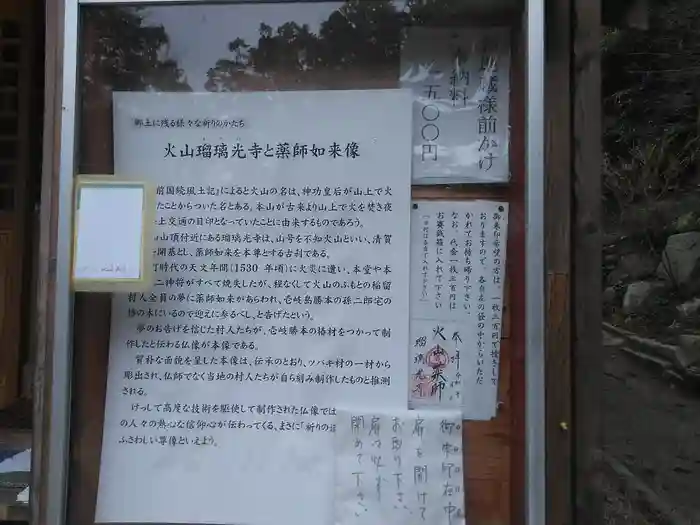 郷土に残る様々な祈りのかたち
火山瑠璃光寺と薬師如来像
前国続風土記』によると火山の名は、神功皇后が山上で火
たことからついた名とある。本山が古来より山上で火を焚き夜
上交通の目印となっていたことに由来するものであろう。
山頂付近にある瑠璃光寺は、山号を不知火山といい、清賀
開基とし、薬師如来を本尊とする古刹である。
町時代の天文年間(1530 年頃)に火災に遭い、本堂や本
二神将がすべて焼失したが、程なくして火山のふもとの稲留
村人全員の夢に薬師如来があらわれ、壱岐島勝本の孫二郎宅の
椿の木にいるので迎えに参るべし、と告げたという。
夢のお告げを信じた村人たちが、壱岐勝本の椿材をつかって制
作したと伝わる仏像が本像である。
質朴な面貌を呈した本像は、伝承のとおり、ツバキ材の一材から
彫出され、仏師でなく当地の村人たちが自ら刻み制作したものと推測
される。
けっして高度な技術を駆使して制作された仏像では
の人々の熱心な信仰心が伝わってくる、まさに「祈りの
ふさわしい尊像といえよう。
地蔵様前かけ
納料
五〇〇円
御朱印希望の方は、一枚三百円で授与して
おりますので、各自左の袋の中からいただ
かれてお持ち帰り下さい。
なお、代金一枚三百円は
お賽銭箱に入れて下さい
火山薬師
瑠璃光寺
御朱印在中
扉を開けて
お取り下さい
扉は必ず
閉めて下さい